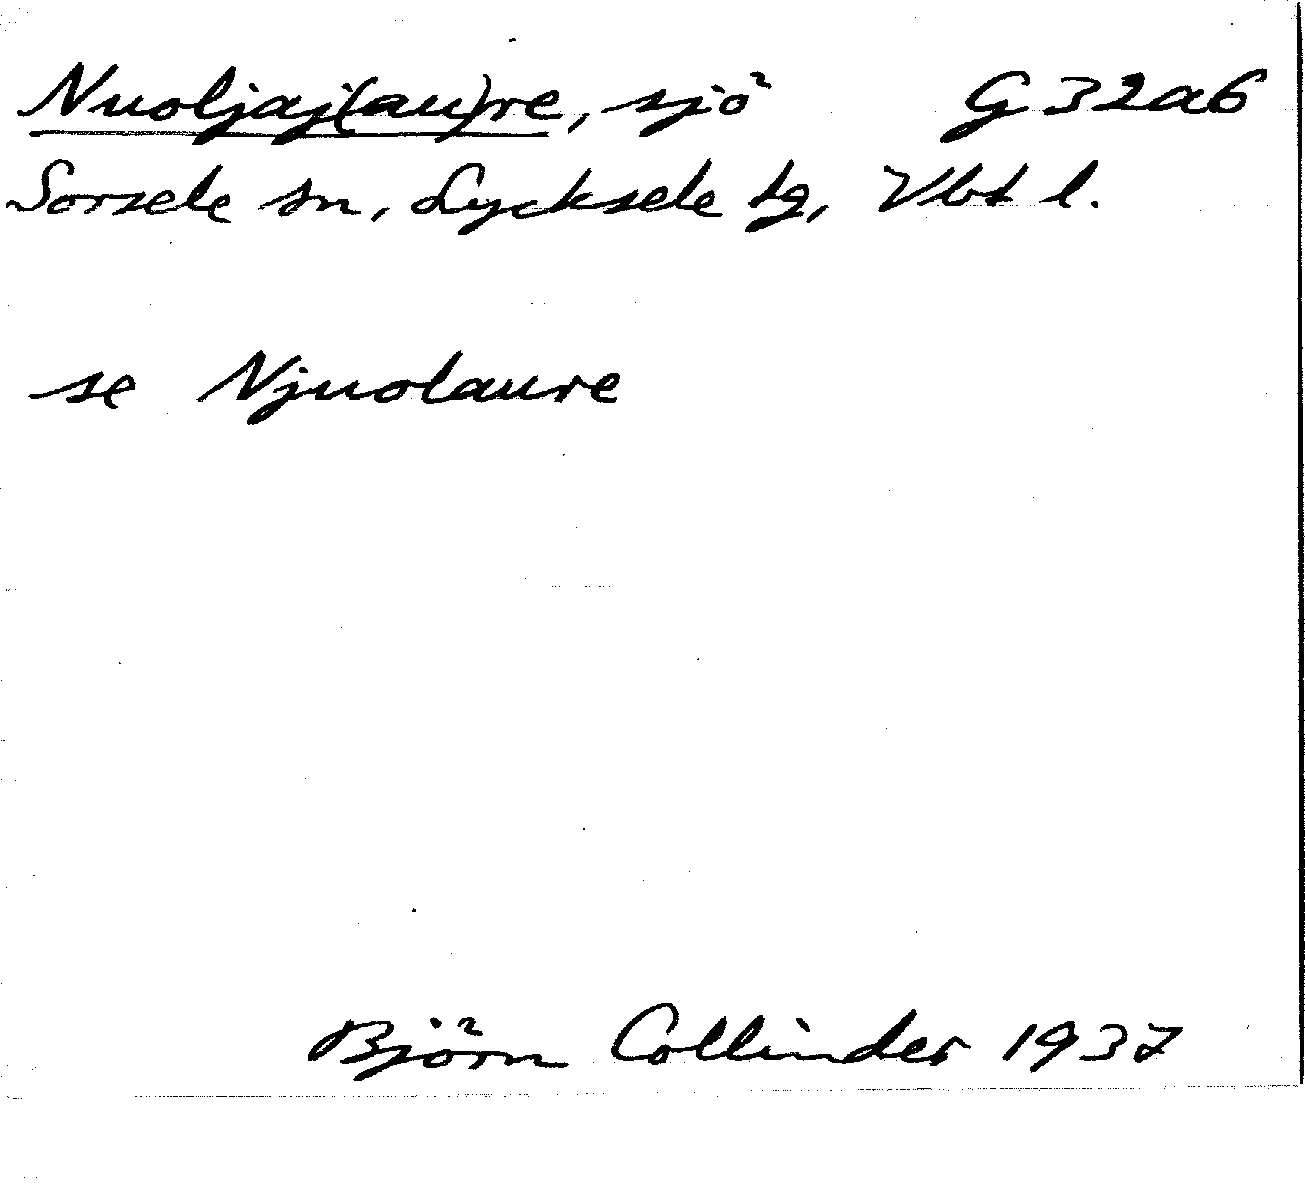 Nuoljaj(au)re, sjö G32a6
Sorsele sn, Lycksele tg, Vbt l.
se Njuolaure
Björn Collinder 1937